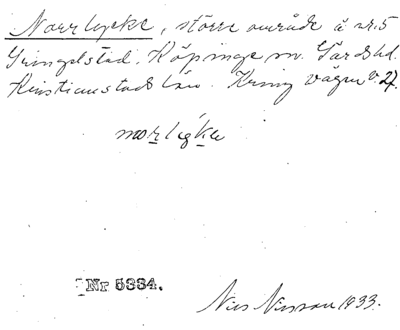 Norrlycke, större område å nr. 5
Gringelstad. Köpinge sn. Gärds hd.
Kristianstads län. Kring vägen v. 27.
norlykke
Nr 5334.
Nils Nilsson 1933.